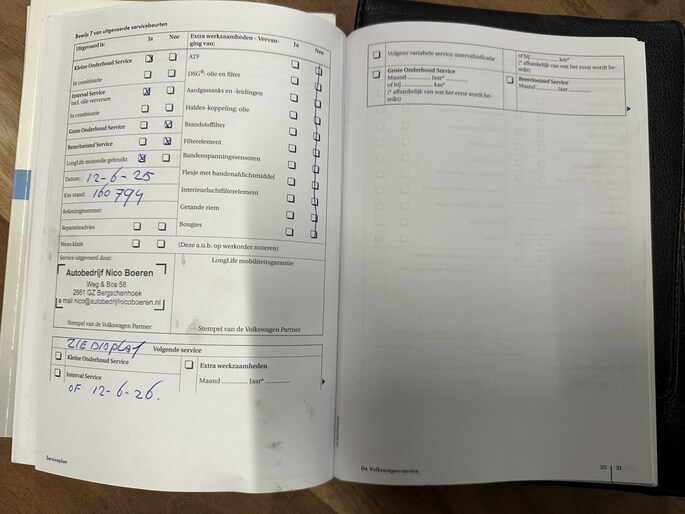 Bewijs 7 van uitgevoerde servicebeurten
Uitgevoerd is: Ja Nee
Kleine Onderhoud Service
In combinatie
Interval Service
incl. olie verversen
In combinatie
Grote Onderhoud Service
Remvloeistof Service
LongLife motorolie gebruikt
Datum: 12-6-25
Km-stand: 160794
Rekeningnummer:
Reparatieadvies
Wens klant
Extra werkzaamheden - Vervan-
ging van: Ja Nee
ATF
DSG®: olie en filter
Aardgastanks en -leidingen
Haldex-koppeling: olie
Brandstoffilter
Filterelement
Bandenspanningssensoren
Flesje met bandenafdichtmiddel
Interieurluchtfilterelement
Getande riem
Bougies
(Deze a.u.b. op werkorder noteren)
Service uitgevoerd door:
Autobedrijf Nico Boeren
Weg & Bos 56
2661 GZ Bergschenhoek
e mail nico@autobedrijfnicoboeren.nl
Stempel van de Volkswagen Partner
LongLife mobiliteitsgarantie:
Stempel van de Volkswagen Partner
ZIE DISPLAY
Volgende service
Kleine Onderhoud Service
Interval Service
OF 12-6-26.
Extra werkzaamheden
Maand .......... Jaar* ..........
Serviceplan
Volgens variabele service-intervalindicatie
Grote Onderhoud Service
Maand .......... Jaar* ..........
of bij .......... km*
(* afhankelijk van wat het eerst wordt be-
reikt)
of bij .......... km*
(* afhankelijk van wat het eerst wordt be-
reikt)
Remvloeistof Service
Maand .......... Jaar ..........
De Volkswagen-service
30 31